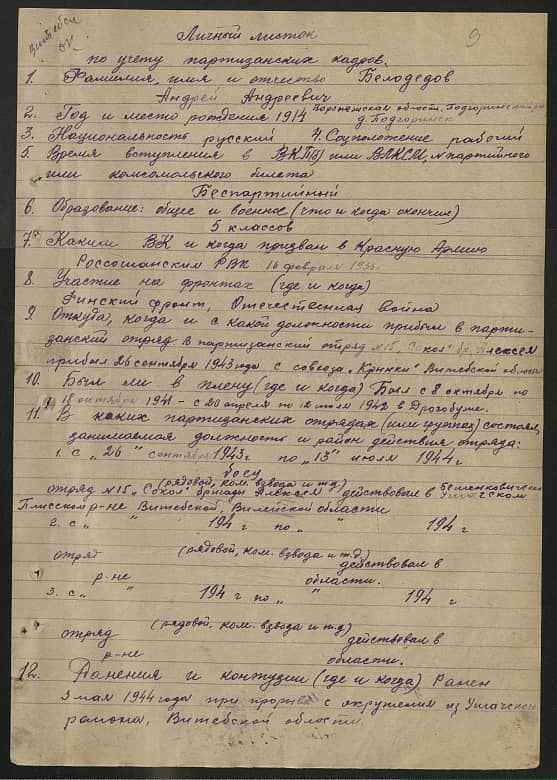 Витебск
9
Личный листок
по учету партизанских кадров.
1. Фамилия, имя и отчество Белодедов
Андрей Андреевич
2. Год и место рождения 1914 Воронежская область, Подгоринский
д. Подгоринск
3. Национальность русский 4. Соцположение рабочий
5. Время вступления в ВКП(б) или ВЛКСМ, № партийного
или комсомольского билета
Беспартийный
6. Образование: общее и военное (что и когда окончил)
5 классов
7. Каким ВК и когда призван в Красную Армию
Россошанским РВК 16 февраля
8. Участие на фронтах (где и когда)
Финский фронт, Отечественная война
9. Откуда, когда и с какой должности прибыл в парти-
занский отряд В партизанский отряд №15 „Сокол" бр. Алексея
прибыл 26 сентября 1943 года с совхоза „Крынки" Витебской области
10. Был ли в плену (где и когда) Был с 8 октября по
18 октября 1941 - с 20 апреля по 12 июля 1942 в Дрогобуже.
11. В каких партизанских отрядах (или группах) состоял,
занимаемая должность и район действия отряда:
1. с „26" сентября 1943г по „15" июля 1944г
боец
(рядовой, ком. взвода и т.д.)
отряд №15 „Сокол" бригады Алексея действовал в Бешенковичском
Ушачском
Плисском р-не Витебской, Вилейской области
2. с „ " 194 г по „ " 194 г
(рядовой, ком. взвода и т.д.)
отряд действовал в
р-не области.
3. с „ " 194 г по „ " 194 г
(рядовой, ком. взвода и т.д)
отряд действовал в
р-не области.
12. Ранения и контузии (где и когда) Ранен
3 мая 1944 года при прорыве с окружения из Ушачского
района, Витебской области.